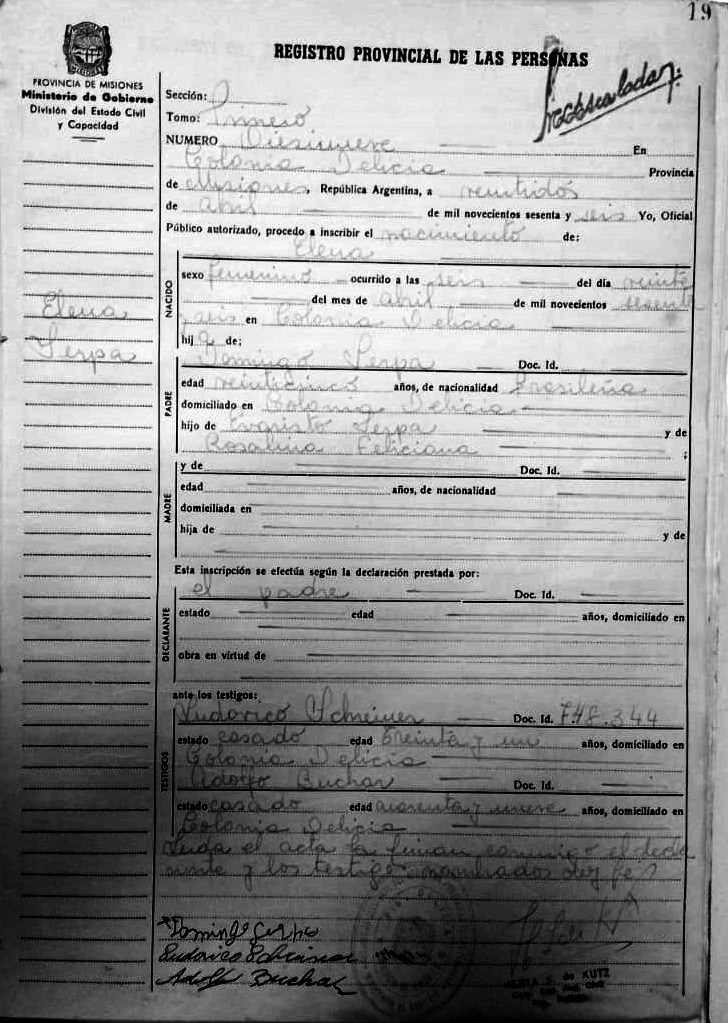 19
REGISTRO PROVINCIAL DE LAS PERSONAS
PROVINCIA DE MISIONES
Ministerio de Gobierno
División del Estado Civil
y Capacidad
Sección:
Tomo: Primero
NUMERO Diesinueve En
Colonia Delicia Provincia
de Misiones, República Argentina, a veintidós
de abril de mil novecientos sesenta y seis Yo, Oficial
Público autorizado, procedo a inscribir el nacimiento de:
Elena
NACIDO
sexo femenino ocurrido a las seis del día veinte
del mes de abril de mil novecientos sesenta
seis en Colonia Delicia
hija de;
Elena
Serpa
PADRE
Domingo Serpa Doc. Id.
edad veinticinco años, de nacionalidad Brasileña
domiciliado en Colonia Delicia
hijo de Evaristo Serpa y de
Rosalina Feliciana ;
MADRE
y de Doc. Id.
edad años, de nacionalidad
domiciliada en
hija de y de
Esta inscripción se efectúa según la declaración prestada por:
DECLARANTE
el padre Doc. Id.
estado edad años, domiciliado en
obra en virtud de
ante los testigos:
TESTIGOS
Ludovico Schreiner Doc. Id. 748.344
estado casado edad treinta y un años, domiciliado en
Colonia Delicia
Adolfo Buchar Doc. Id.
estado casado edad cuarenta y nueve años, domiciliado en
Colonia Delicia
Leida el acta la firman conmigo el decla
rante y los testigos nombrados doy fe
Domingo Serpa
Ludovico Schreiner
Adolf Buchar
S. de KUTZ